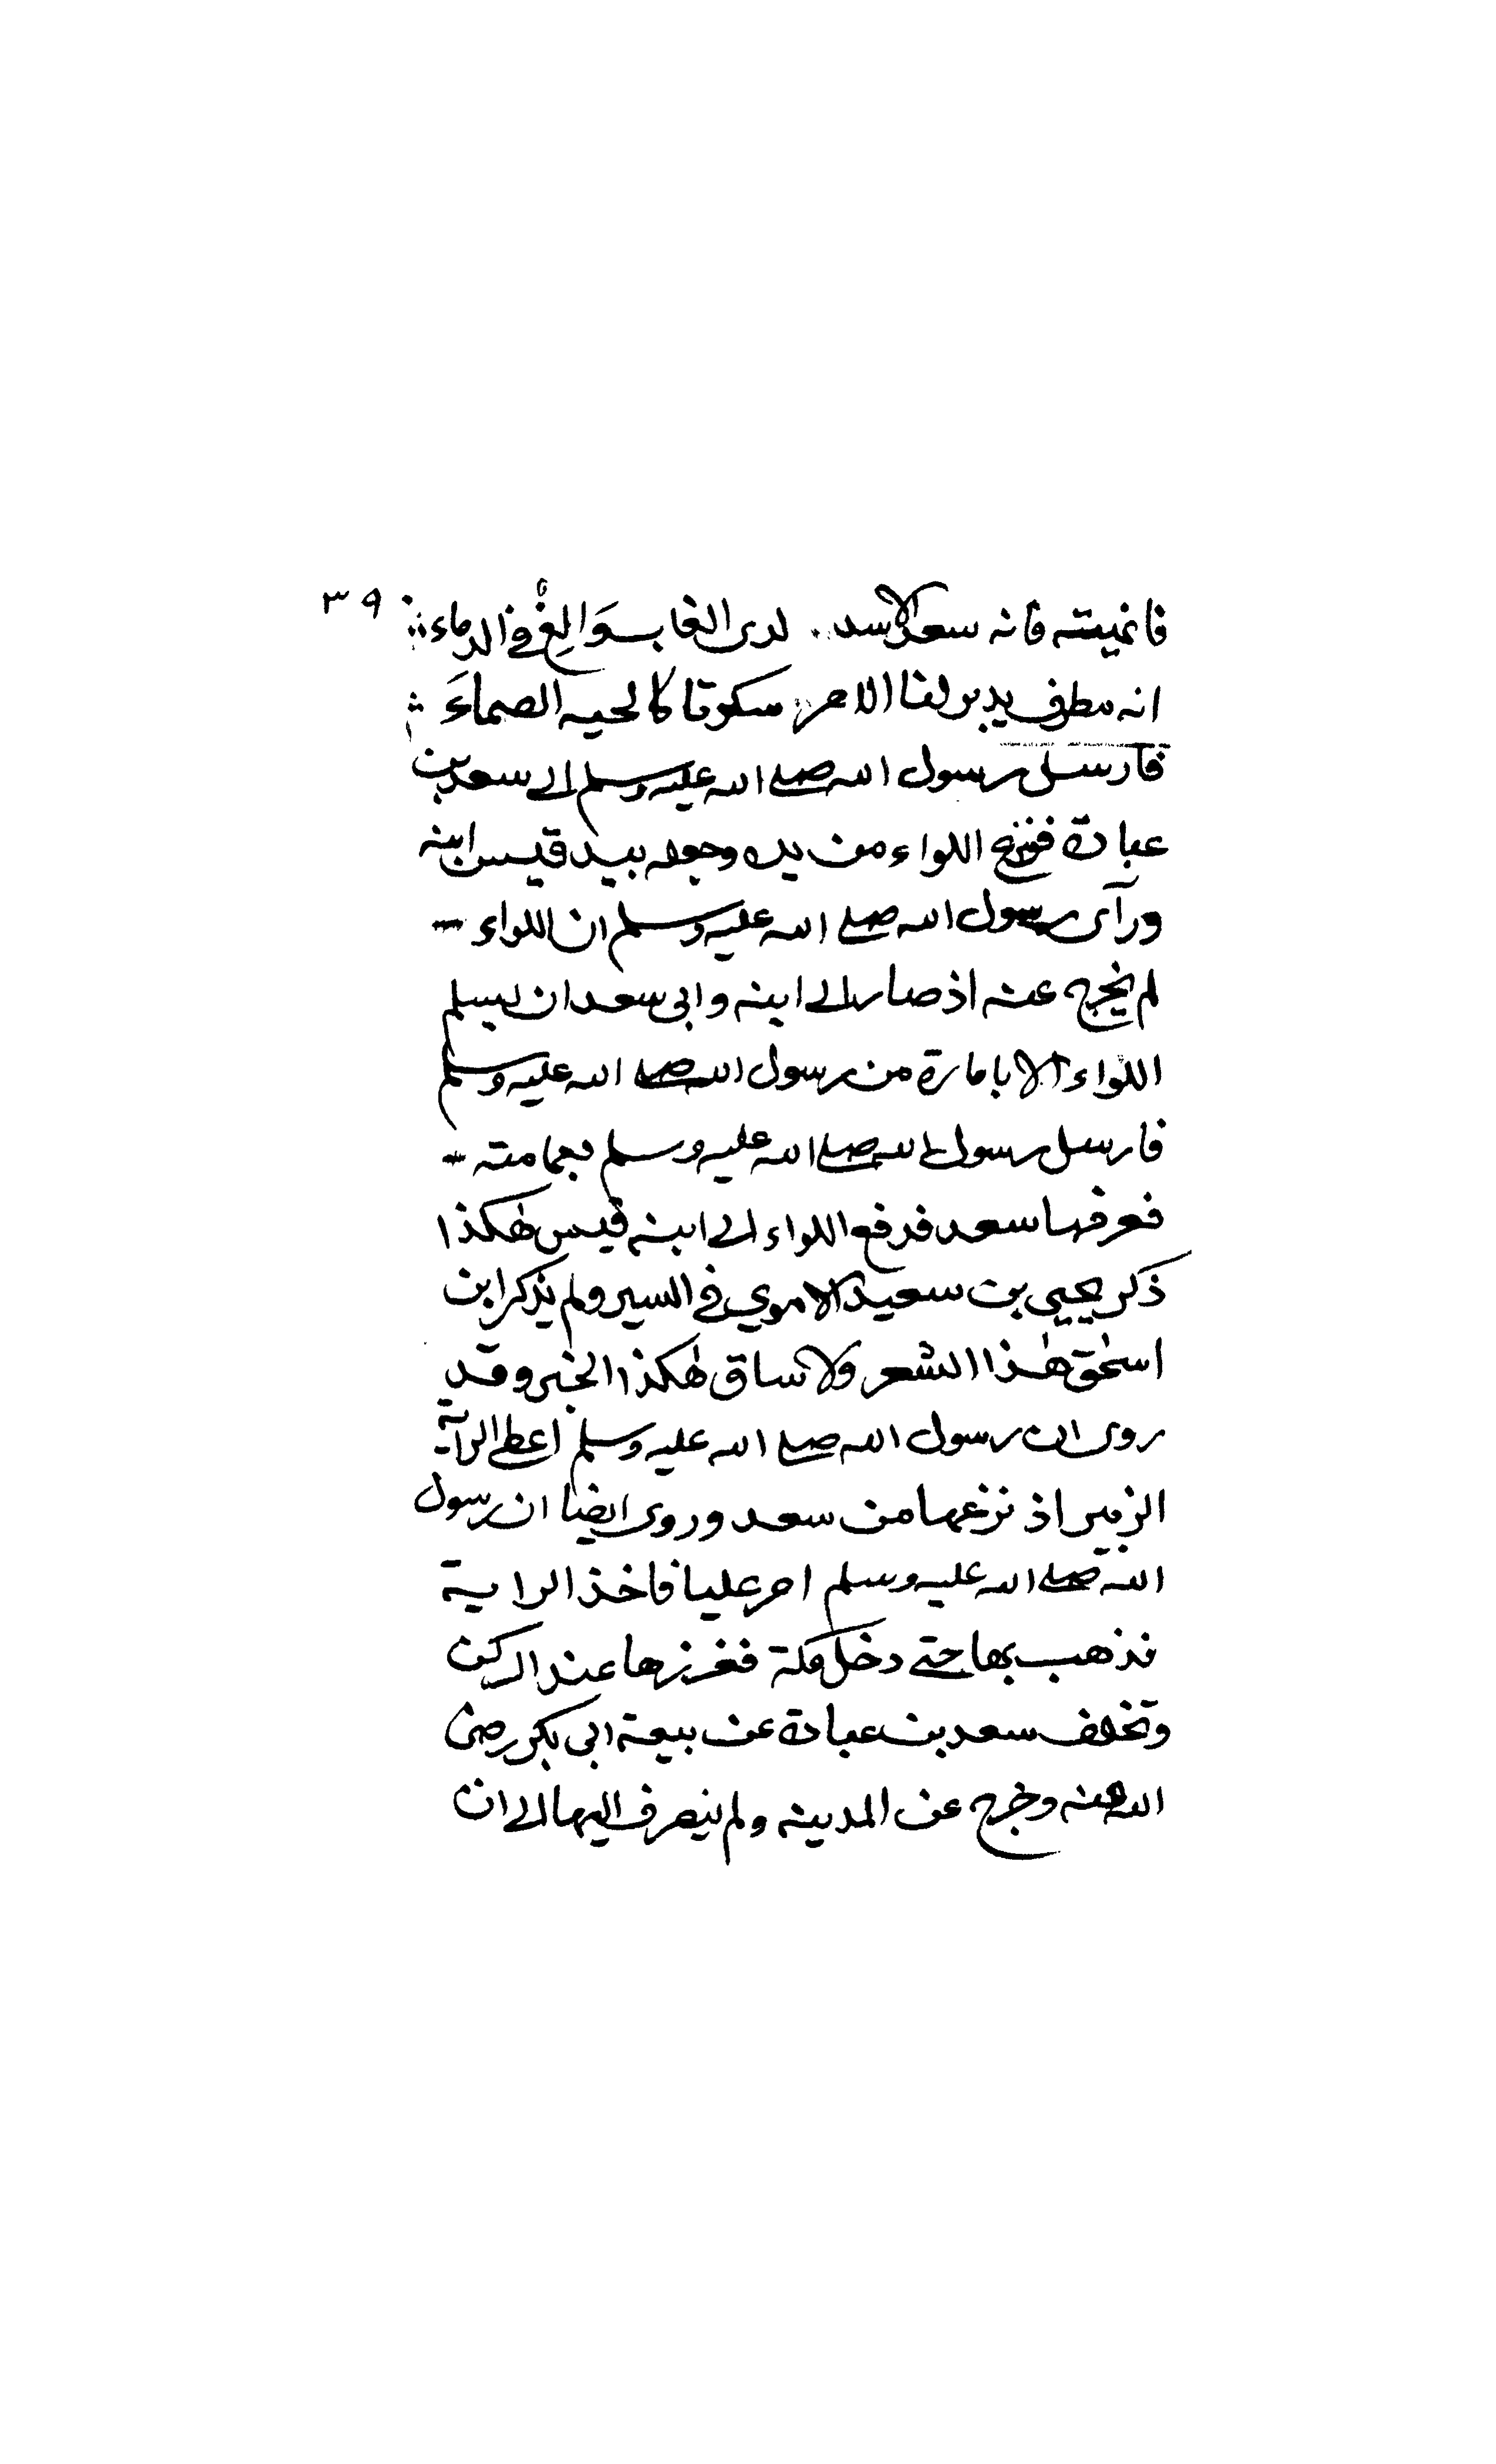 فانميته فانه سعد الاسد .. لدى الغاب والغ في الدماء ٣٩
انه مطرف يدير لنا الامر سكوتا كالحيه الصماء
فارسل رسول الله صلى الله عليه وسلم الى سعد بن
عبادة فنزع اللواء من يده وجعله بيد قيس ابنه
ورآى رسول الله صلى الله عليه وسلم ان اللواء
لم يخرج عنه اذ صار الى ابنه وابى سعد ان يسلم
اللواء الا بامارة من رسول الله صلى الله عليه وسلم
فارسل رسول الله صلى الله عليه وسلم بعمامته
فعرفها سعد فدفع اللواء الى ابنه قيس هكذا
ذكر يحيى بن سعيد الاموي في السير ولم يذكر ابن
اسحق هذا الشعر ولا ساق هكذا الخبر وقد
روى ان رسول الله صلى الله عليه وسلم اعطى الراية
الزبير اذ نزعها من سعد وروى ايضا ان رسول
الله صلى الله عليه وسلم امر عليا فاخذ الراية
فذهب بها حتى دخل مكة فغرزها عند الركن
وتخلف سعد بن عبادة عن بيعة ابى بكر رضى
الله عنه وخرج عن المدينه ولم ينصرف اليها الى ان